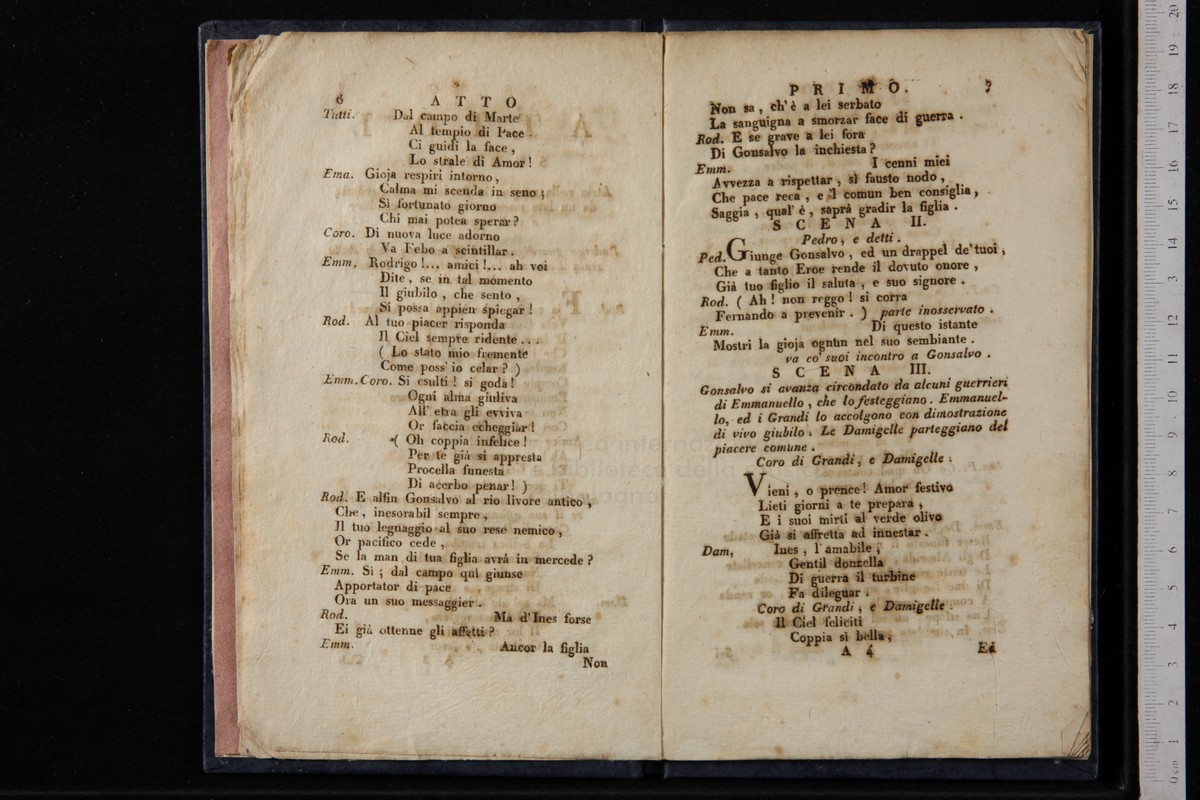 6 ATTO
Tutti. Dal campo di Marte
Al tempio di Pace
Ci guidi la face,
Lo strale di Amor!
Ema. Gioja respiri intorno,
Calma mi scenda in seno;
Sì fortunato giorno
Chi mai potea sperar?
Coro. Di nuova luce adorno
Va Febo a scintillar.
Emm. Rodrigo!... amici!... ah voi
Dite, se in tal momento
Il giubilo, che sento,
Si possa appien spiegar!
Rod. Al tuo piacer risponda
Il Ciel sempre ridente...
( Lo stato mio fremente
Come poss' io celar? )
Emm. Coro. Si esulti! si goda!
Ogni alma giuliva
All' etra gli evviva
Or faccia echeggiar!
Rod. ( Oh coppia infelice!
Per te già si appresta
Procella funesta
Di acerbo penar! )
Rod. E alfin Gonsalvo al rio livore antico,
Che, inesorabil sempre,
Il tuo legnaggio al suo rese nemico,
Or pacifico cede,
Se la man di tua figlia avrà in mercede?
Emm. Sì; dal campo quì giunse
Apportator di pace
Ora un suo messaggier.
Rod. Ma d'Ines forse
Ei già ottenne gli affetti?
Emm. Ancor la figlia
Non
PRIMO. 7
Non sa, ch' è a lei serbato
La sanguigna a smorzar face di guerra.
Rod. E se grave a lei fora
Di Gonsalvo la inchiesta?
Emm. I cenni miei
Avvezza a rispettar, sì fausto nodo,
Che pace reca, e 'l comun ben consiglia,
Saggia, qual' è, saprà gradir la figlia.
SCENA II.
Pedro, e detti.
Ped. Giunge Gonsalvo, ed un drappel de' tuoi,
Che a tanto Eroe rende il dovuto onore,
Già tuo figlio il saluta, e suo signore.
Rod. ( Ah! non reggo! si corra
Fernando a prevenir. ) parte inosservato.
Emm. Di questo istante
Mostri la gioja ognùn nel suo sembiante.
va co' suoi incontro a Gonsalvo.
SCENA III.
Gonsalvo si avanza circondato da alcuni guerrieri
di Emmanuello, che lo festeggiano. Emmanuel-
lo, ed i Grandi lo accolgono con dimostrazione
di vivo giubilo. Le Damigelle parteggiano del
piacere comune.
Coro di Grandi, e Damigelle.
Vieni, o prence! Amor festivo
Lieti giorni a te prepara,
E i suoi mirti al verde olivo
Già si affretta ad innestar.
Dam, Ines, l'amabile,
Gentil donzella
Di guerra il turbine
Fa dileguar.
Coro di Grandi, e Damigelle.
Il Ciel feliciti
Coppia sì bella,
A 4 Ed